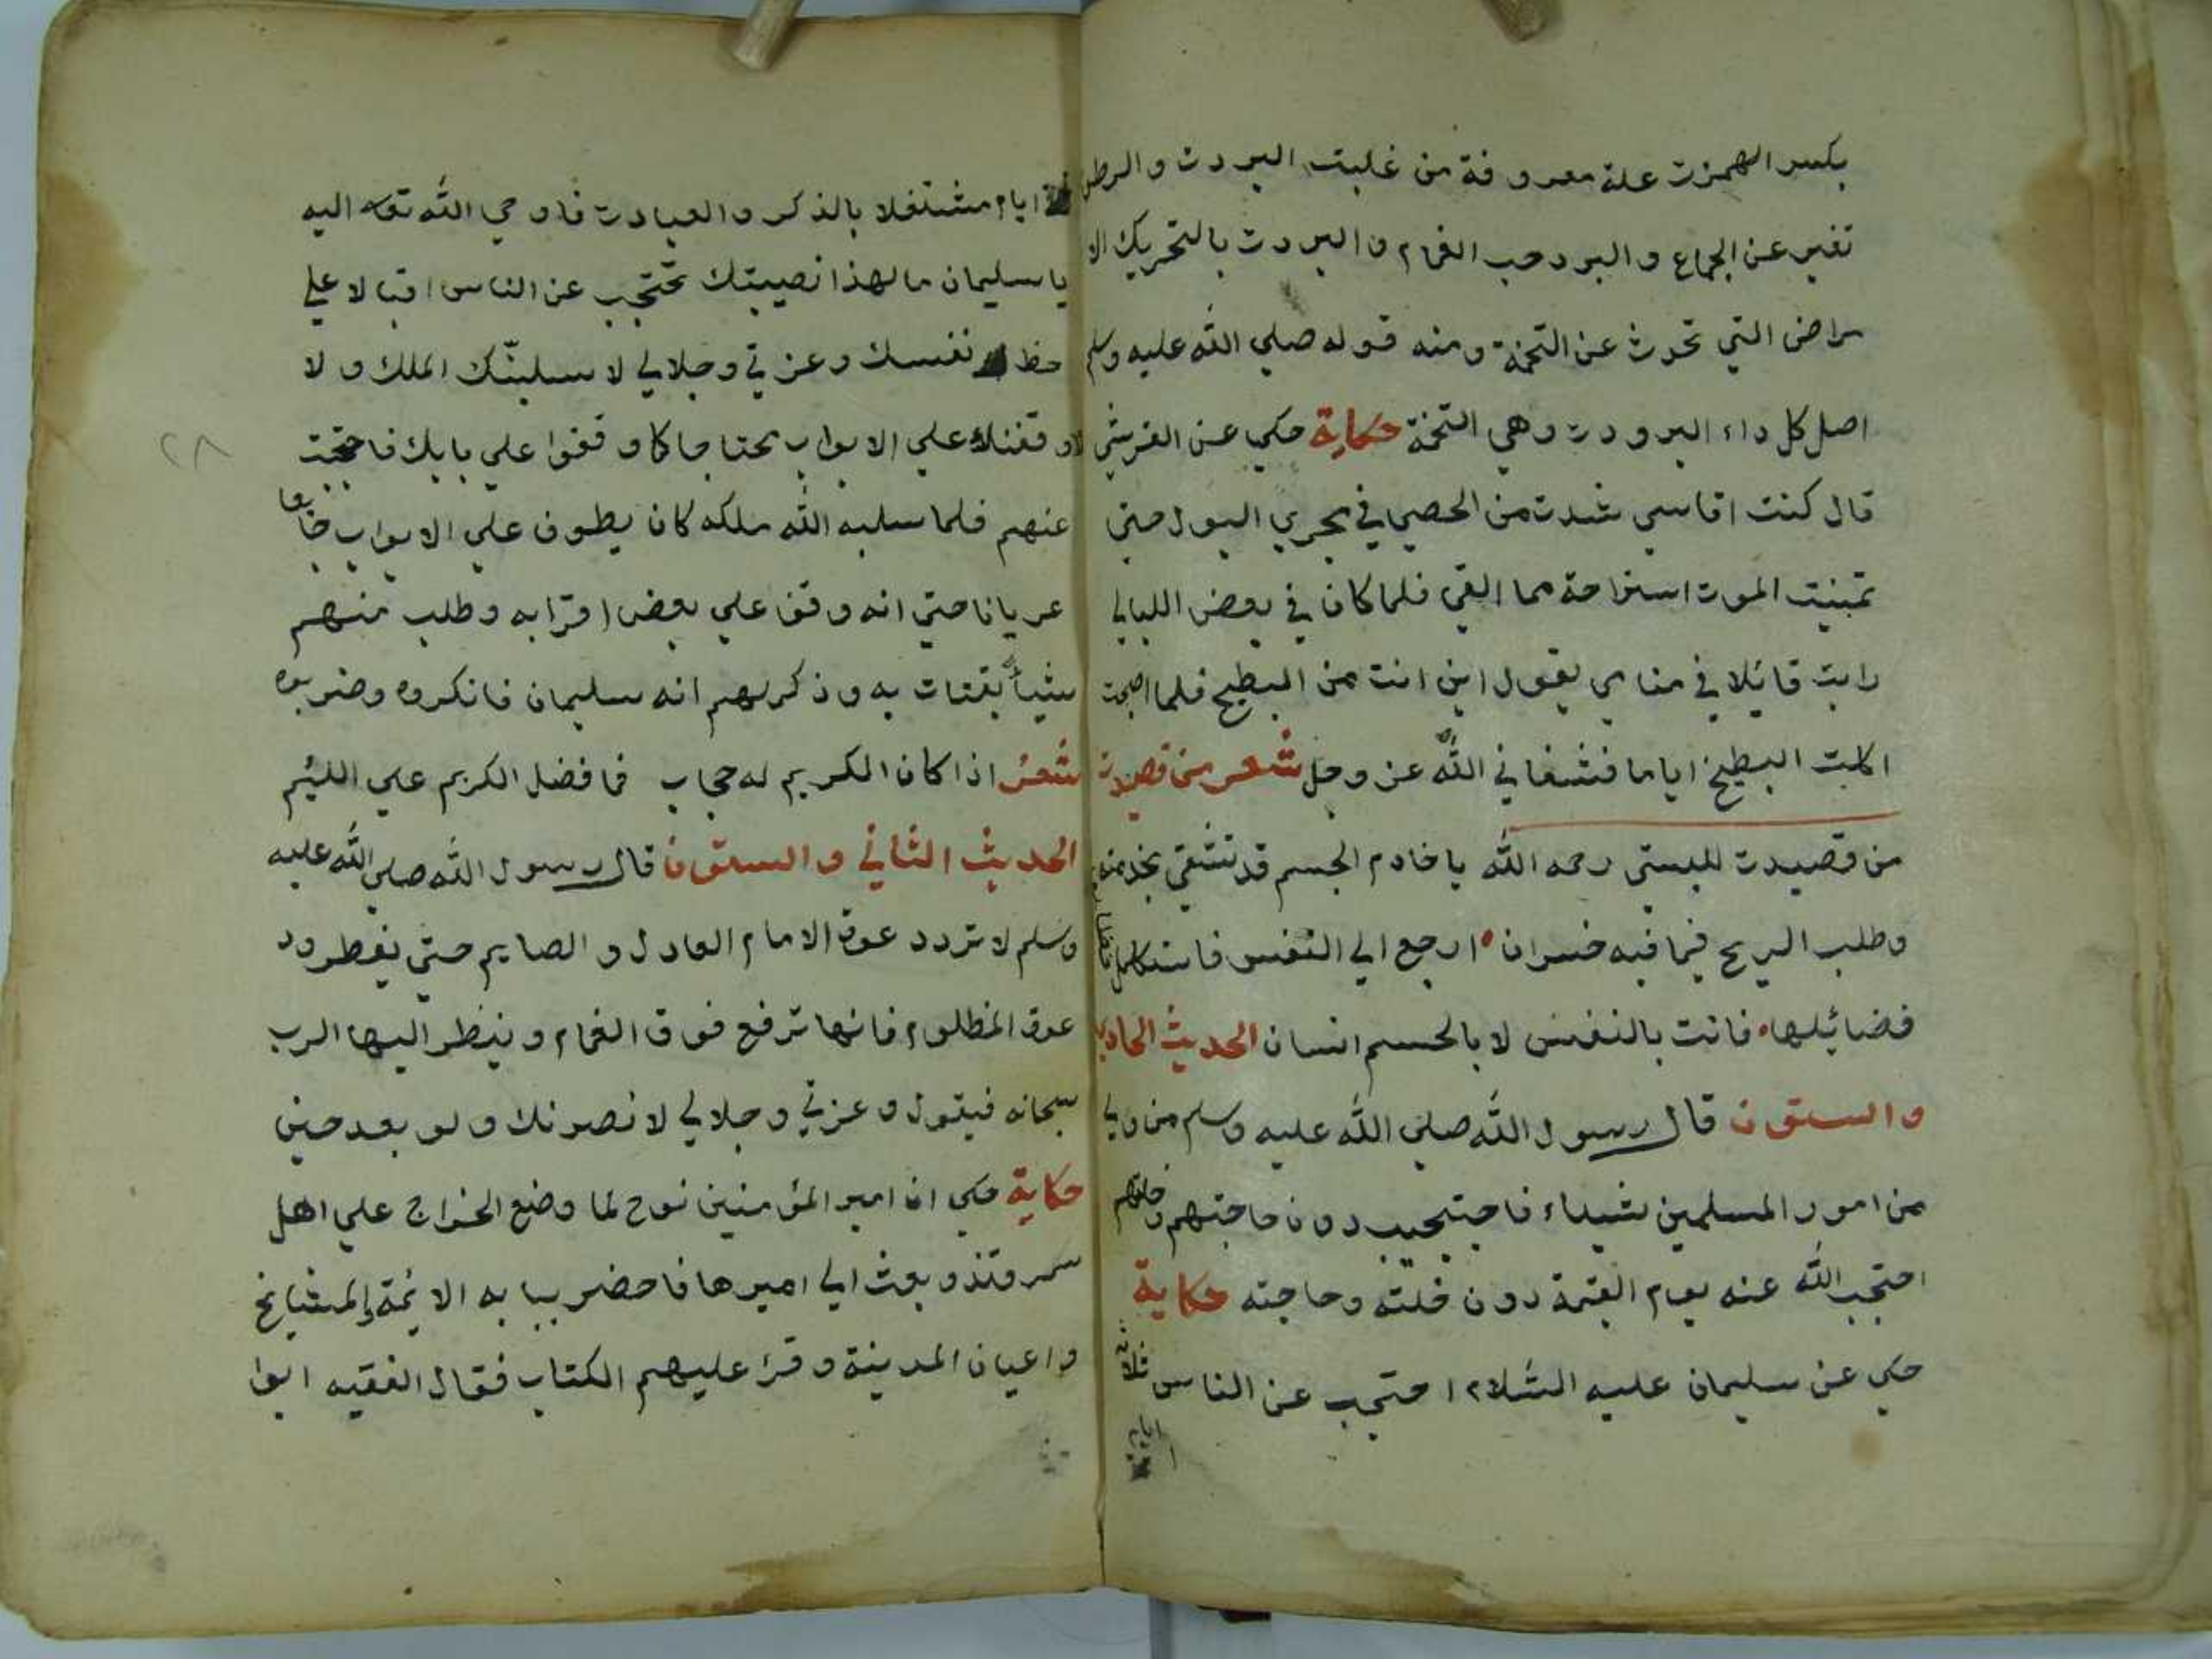 بكسر الهمزت علة معروفة من غلبت البردت والرطو
تفتر عن الجماع والبرد حب الغمام والبردت بالتحريك الا
مراض التي تحدث عن التخمة ومنه قوله صلي الله عليه وسلم
اصل كل داء البرودت وهي التخمة حكاية حكي عن القرشي
قال كنت اقاسي شدت من الحصي في مجري البول حتي
تمنيت الموت استراحة مما القي فلما كان في بعض الليالي
رايت قائلا في منامي يقول اين انت من البطيخ فلما اصبحت
اكلت البطيخ اياما فشفاني الله عز وجل شعر من قصيدت
من قصيدت للبستي رحمه الله يا خادم الجسم قد تشقي بخدمته
وطلب الربح فيما فيه خسران ارجع الي النفس فاستكمل
فضائلها فانت بالنفس لا بالجسم انسان الحديث الحادي
والستون قال رسول الله صلي الله عليه وسلم من ولي
من امور المسلمين شيىاء فاحتجب دون حاجتهم وخلتهم
احتجب الله عنه يوم القيمة دون خلته وحاجته حكاية
حكي عن سليمان عليه السلام احتجب عن الناس ثلاثة
ايام
ايام مشتغلا بالذكر والعبادت فاوحي الله تعه اليه
يا سليمان ما لهذا نصيبتك تحتجب عن الناس اقبالا علي
حظ نفسك وعزتي وجلالي لا سلبنّك الملك ولا
لاوقفنك علي الابواب محتاجا كما وقفوا علي بابك فاحتجبت
عنهم فلما سلبه الله ملكه كان يطوف علي الابواب جائعا
عريانا حتي انه وقف علي بعض اقرابه وطلب منهم
شيأ يقتات به وذكر لهم انه سليمان فانكروه وضربوه
شعر اذا كان الكريم له حجاب فما فضل الكريم علي اللئيم
الحديث الثاني والستون قال رسول الله صلي الله عليه
وسلم لا تردد عوة الامام العادل والصايم حتي يفطر ود
عوة المظلوم فانها ترفع فوق الغمام وينظر اليها الرب
سبحانه فيقول وعزتي وجلالي لانصرنك ولو بعد حين
حكاية حكي ان امير المؤمنين نوح لما وضع الخراج علي اهل
سمرقند وبعث الي اميرها فاحضر ببابه الائمة والمشايخ
واعيان المدينة وقرء عليهم الكتاب فقال الفقيه ابوا
٢٨